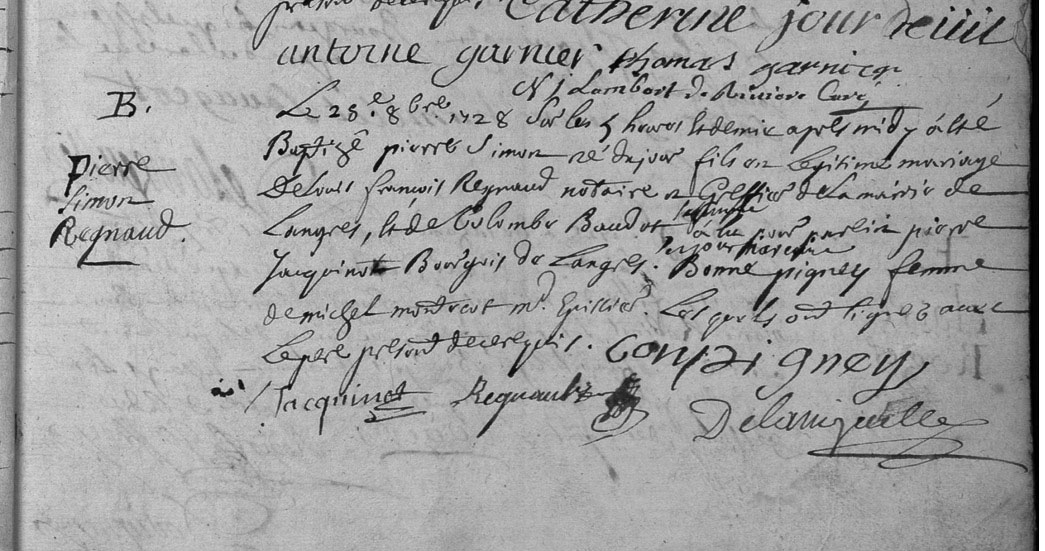 Catherine jourdeuil
antoine garnier thomas garnier
N J Lambert de Riviere Curé
B.
Le 28.e 8bre 1728 sur les 5 heures et demie apres midy à été
Baptizé pierre Simon né du jour fils en legitime mariage
De Louis françois Regnaud notaire et Greffier de la mairie de
Langres, et de Colombe Baudot sa femme à eu pour parein pierre
Jacquinot Bourgeois de Langres. et pour mareine Bonne pigney femme
de michel m.d Epissier. Les quels ont signé avec
Le pere present de ce requis. Bonne pigney
Jacquinot Regnault
Delaniquille
Pierre
Simon
Regnaud.